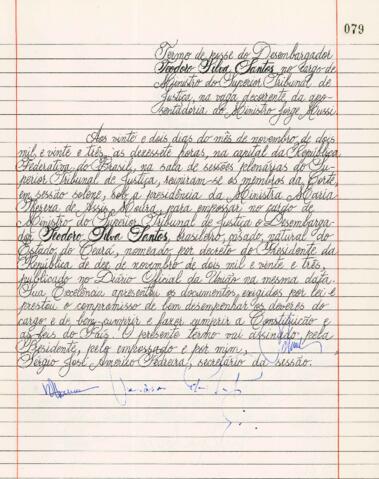 079
Termo de posse do Desembargador
Teodoro Silva Santos no cargo de
Ministro do Superior Tribunal de
Justiça, na vaga decorrente da apo-
sentadoria do Ministro Jorge Mussi.
Aos vinte e dois dias do mês de novembro de dois
mil e vinte e três, às dezessete horas, na capital da República
Federativa do Brasil, na sala de sessões plenárias do Su-
perior Tribunal de Justiça, reuniram-se os membros da Corte,
em sessão solene, sob a presidência da Ministra Maria
Thereza de Assis Moura, para empossar no cargo de
Ministro do Superior Tribunal de Justiça o Desembarga-
dor Teodoro Silva Santos, brasileiro, casado, natural do
Estado do Ceará, nomeado por decreto do Presidente da
República de dez de novembro de dois mil e vinte e três,
publicado no Diário Oficial da União na mesma data.
Sua Excelência apresentou os documentos exigidos por lei e
prestou o compromisso de bem desempenhar os deveres do
cargo e de bem cumprir e fazer cumprir a Constituição e
as leis do País. O presente termo vai assinado pela
Presidente, pelo empossado e por mim,
Sergio José Américo Pedreira, secretário da sessão.